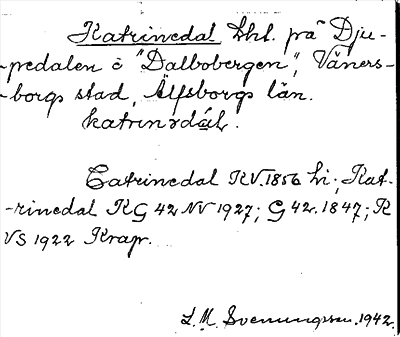 Katrinedal lht. på Dju-
-pedalen å "Dalbobergen", Väners-
-borgs stad, Älfsborgs län.
katrindál.
Catrinedal KV. 1856 hi; Kat-
-rinedal KG 42 NV 1927; G 42. 1847; R
VS 1922 Krapr.
L. M. Svenungsson. 1942.